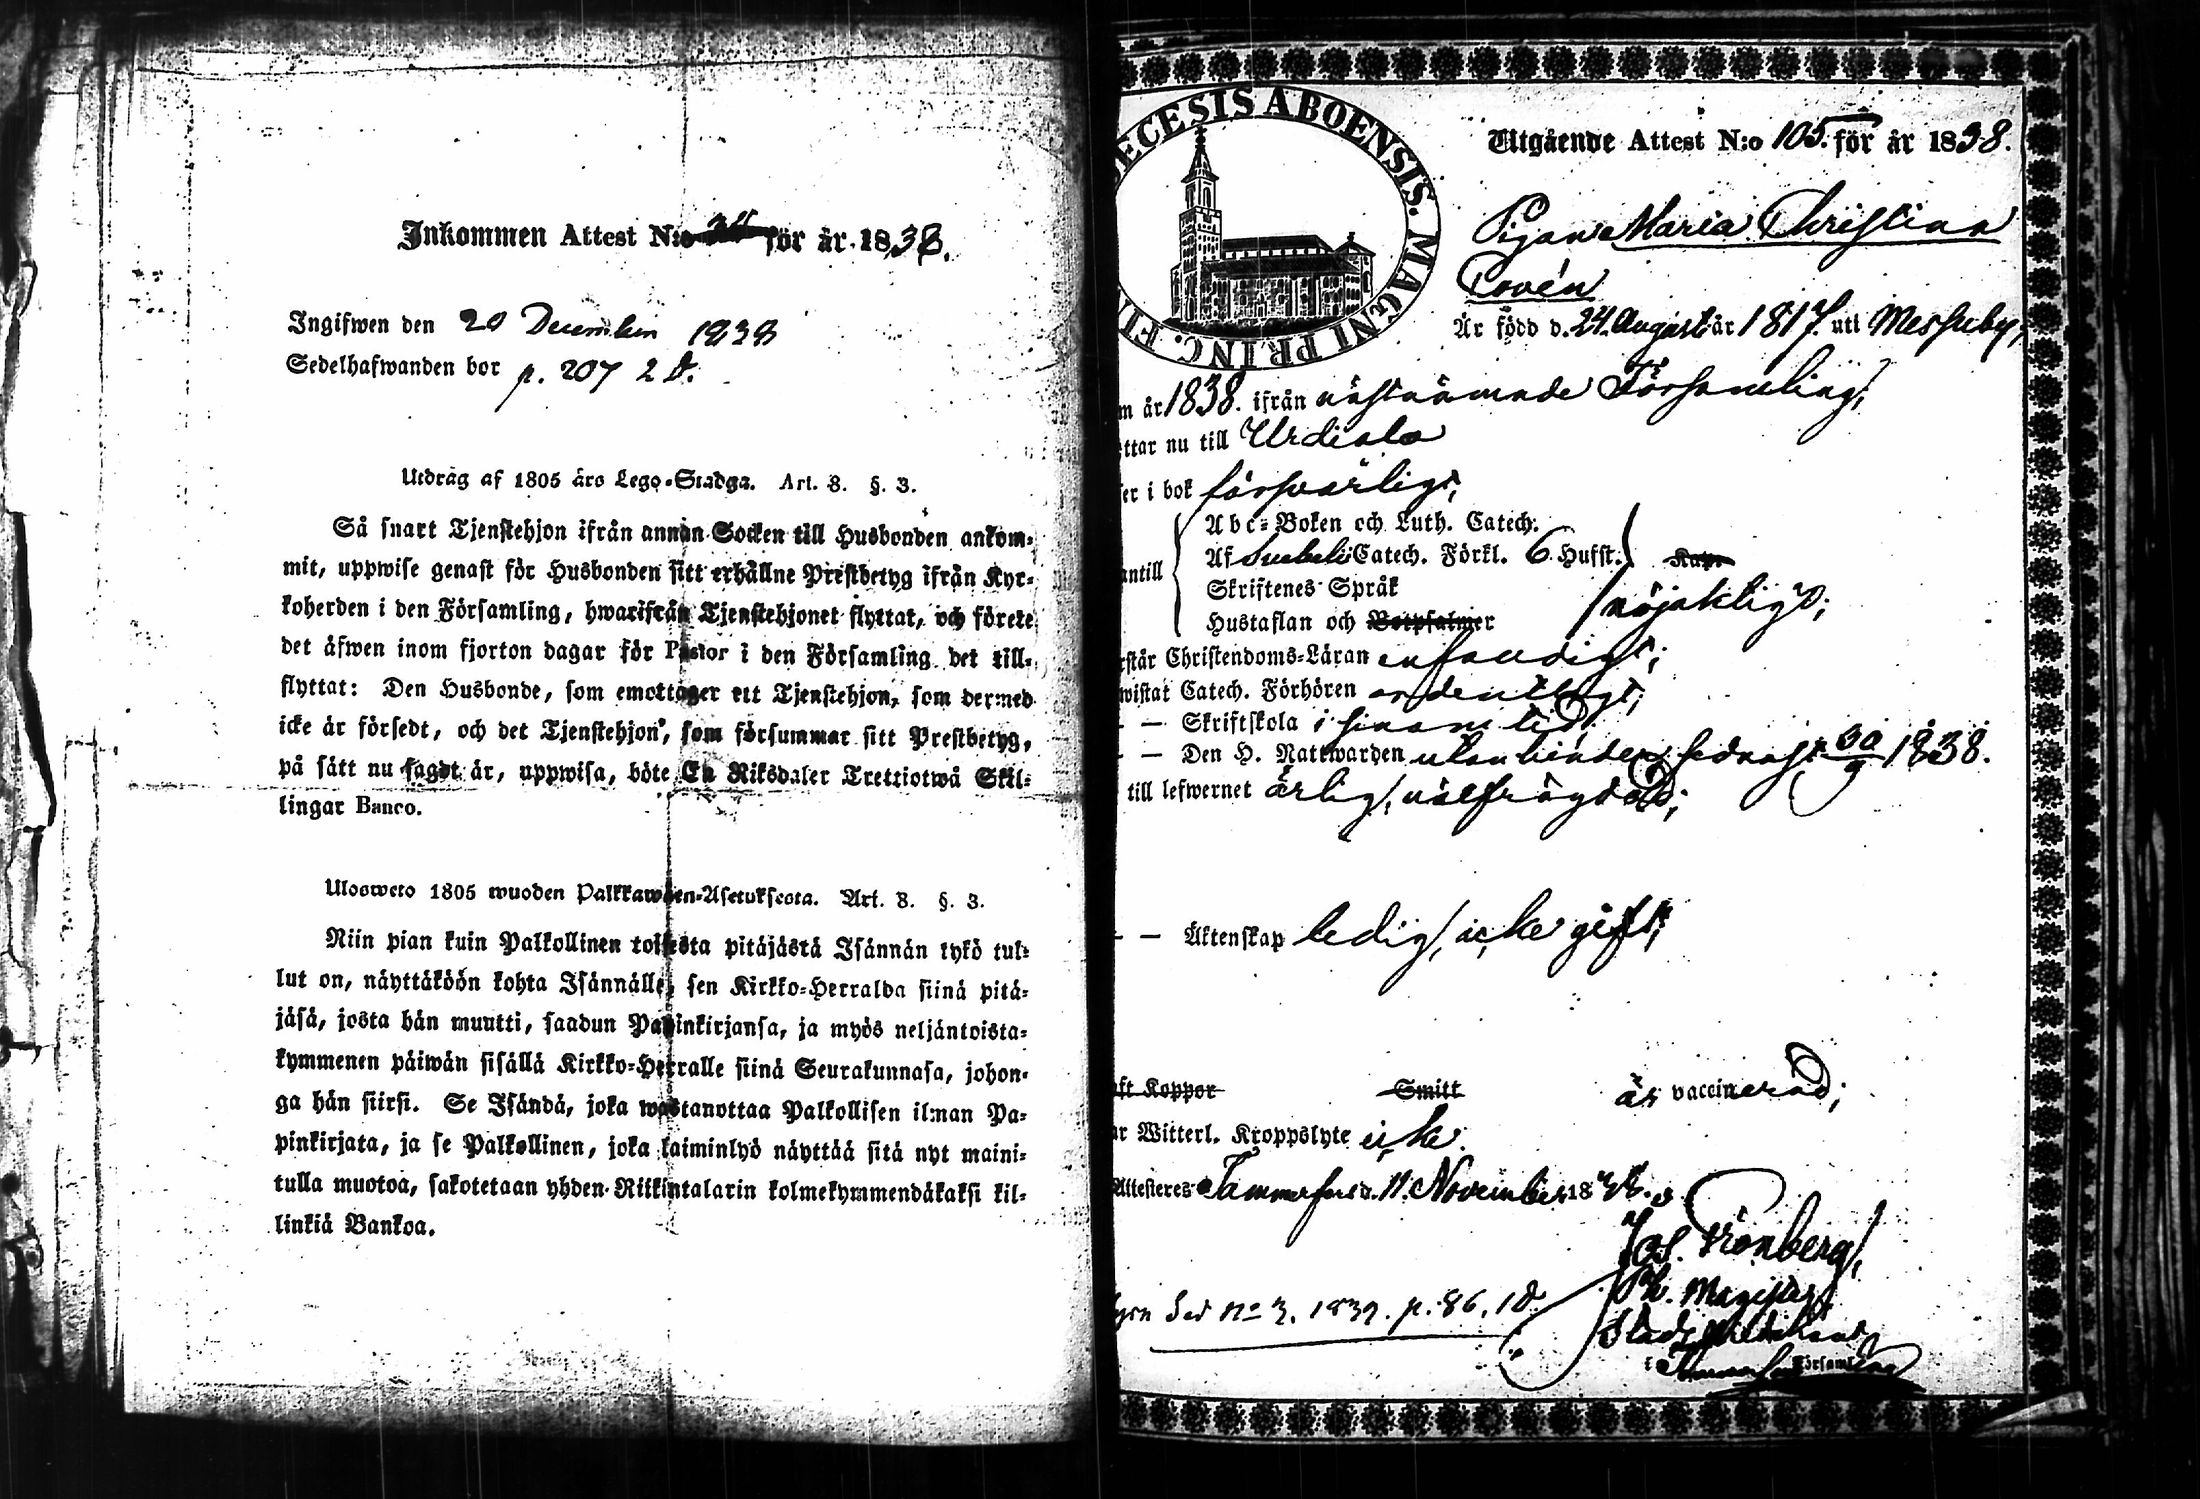 Inkommen Attest N:o för år 1838.
Ingifwen den 20 December 1838
Sedelhafwanden bor p. 207 2 d.
Utdrag af 1805 års Lego-Stadga. Art. 8. §. 3.
Så snart Tjenstehjon ifrån annan Socken till Husbonden ankom-
mit, uppwise genast för Husbonden sitt erhållne Prestbetyg ifrån Kyr-
koherden i den Församling, hwarifrån Tjenstehjonet flyttat, och förete
det äfwen inom fjorton dagar för Pastor i den Församling det till-
flyttat: Den Husbonde, som emottager ett Tjenstehjon, som dermed
icke är försedt, och det Tjenstehjon, som försummar sitt Prestbetyg,
på sätt nu sagdt är, uppwisa, böte En Riksdaler Trettiotwå Skil-
lingar Banco.
Ulosweto 1805 wuoden Palkkawäen-Asetuksesta. Art. 8. §. 3.
Niin pian kuin Palkollinen toisesta pitäjästä Isännän tykö tul-
lut on, näyttäköön kohta Isännälle, sen Kirkko-Herralda siinä pitä-
jäsä, josta hän muutti, saadun Papinkirjansa, ja myös neljäntoista-
kymmenen päiwän sisällä Kirkko-Herralle siinä Seurakunnasa, johon-
ga hän siirsi. Se Isändä, joka wastanottaa Palkollisen ilman Pa-
pinkirjata, ja se Palkollinen, joka laiminlyö näyttää sitä nyt maini-
tulla muotoa, sakotetaan yhden Riikintalarin kolmekymmendäkaksi kil-
linkiä Bankoa.
ECESIS ABOENSIS. MAGNI PRINC. FI
Utgående Attest N:o 105. för år 1838.
Pigan Maria Christina
Är född d. 24. Augusti år 1817. uti Messuby,
m år 1838. ifrån nästnämnde Församling,
ttar nu till Urdiala
er i bok försvarligt,
Abc-Boken och Luth. Catech.
Af Svebelii Catech. Förkl. 6. Hufst.
antill Skriftenes Språk nöjaktigt;
Hustaflan och Botpsalmer
rstår Christendoms-Läran enfaldigt;
wistat Catech. Förhören ordentligt;
— Skriftskola i sinom tid;
— — Den H. Nattwarden utan hinder, sednast 30/9 1838.
till lefwernet ärlig, välfrägdad;
— — Äktenskap ledig, icke gift;
ft Koppor Smitt är vaccinerad;
ar Witterl. Kroppslyte icke.
Attesteres Tammerfors d. 11. November 18
Jos. Grönberg,
Ph. Magister
Stads Predikant
i Tammerfors Församling
Sed No 3. 1839. p. 86. 1 d.